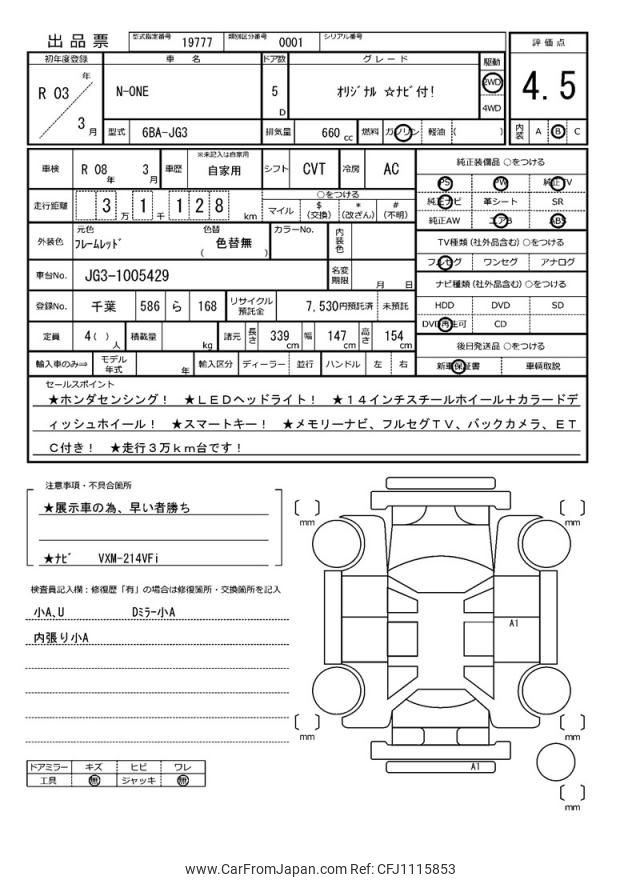 出品票 型式指定番号 19777 類別区分番号 0001 シリアル番号
評価点
4.5
内装 A B C
初年度登録 車名 ドア数 グレード 駆動
R 03 年 N-ONE 5 D ｵﾘｼﾞﾅﾙ ☆ﾅﾋﾞ付! 2WD
4WD
3 月 型式 6BA-JG3 排気量 660 cc 燃料 ガソリン 軽油 ( )
車検 R 08 年 3 月 車歴 ※未記入は自家用 自家用 シフト CVT 冷房 AC
走行距離 3 万 1 千 1 2 8 km ○をつける
マイル $(交換) *(改ざん) #(不明)
外装色 元色 ﾌﾚｰﾑﾚｯﾄﾞ 色替 ( 色替無 ) カラーNo. 内装色
車台No. JG3-1005429 名変期限 月 日
登録No. 千葉 586 ら 168 リサイクル預託金 7,530円預託済 未預託
定員 4( )人 積載量 kg 諸元 長さ 339 cm 幅 147 cm 高さ 154 cm
輸入車のみ⇒ モデル年式 年 輸入区分 ディーラー 並行 ハンドル 左 右
純正装備品 ○をつける
PS PW 純正TV
純正ナビ 革シート SR
純正AW エアB ABS
TV種類(社外品含む) ○をつける
フルセグ ワンセグ アナログ
ナビ種類(社外品含む) ○をつける
HDD DVD SD
DVD再生可 CD
後日発送品 ○をつける
新車保証書 車輌取説
セールスポイント
★ホンダセンシング! ★ＬＥＤヘッドライト! ★１４インチスチールホイール＋カラードデ
ィッシュホイール! ★スマートキー! ★メモリーナビ、フルセグＴＶ、バックカメラ、ＥＴ
Ｃ付き! ★走行３万ｋｍ台です!
注意事項・不具合箇所
★展示車の為、早い者勝ち
★ﾅﾋﾞ VXM-214VFi
検査員記入欄：修復歴「有」の場合は修復箇所・交換箇所を記入
小A､U Dﾐﾗｰ小A
内張り小A
ドアミラー キズ ヒビ ワレ
工具 無 ジャッキ 無
mm
mm
A1
mm
mm
A1
mm
www.CarFromJapan.com Ref: CFJ1115853